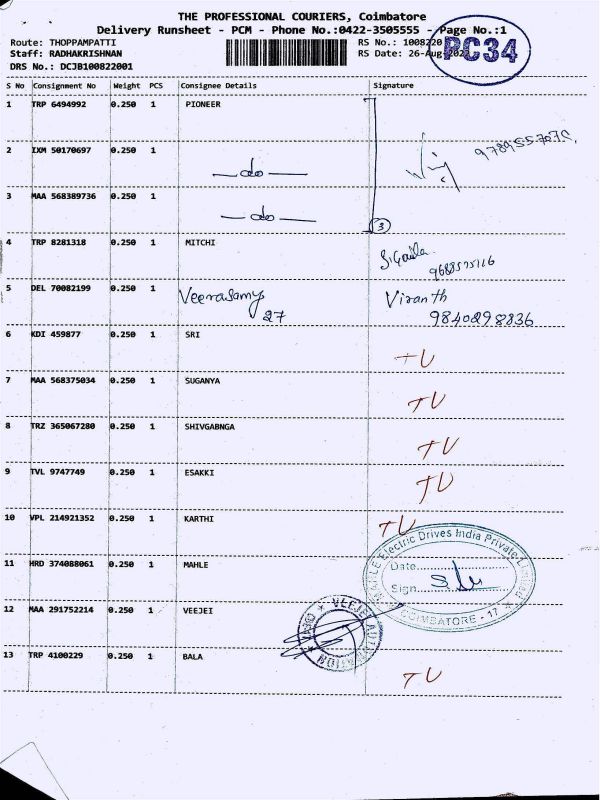 THE PROFESSIONAL COURIERS, Coimbatore
Delivery Runsheet - PCM - Phone No.:0422-3505555 - Page No.:1
Route: THOPPAMPATTI
Staff: RADHAKRISHNAN
DRS No.: DCJB100822001
RS No.: 1008220
RS Date: 26-Aug-2022
PC34
S No Consignment No Weight PCS Consignee Details Signature
1 TRP 6494992 0.250 1 PIONEER
2 IXM 50170697 0.250 1 —do—
3 MAA 568389736 0.250 1 —do— 3
4 TRP 8281318 0.250 1 MITCHI
9688575116
5 DEL 70082199 0.250 1 Veerasamy Viranth
27 9840298836
6 KDI 459877 0.250 1 SRI TU
7 MAA 568375034 0.250 1 SUGANYA TU
8 TRZ 365067280 0.250 1 SHIVGABNGA TU
9 TVL 9747749 0.250 1 ESAKKI TU
10 VPL 214921352 0.250 1 KARTHI TU
11 HRD 374088061 0.250 1 MAHLE
Electric Drives India Private Limited
Date
Sign
COIMBATORE - 17
12 MAA 291752214 0.250 1 VEEJEI
13 TRP 4100229 0.250 1 BALA TU